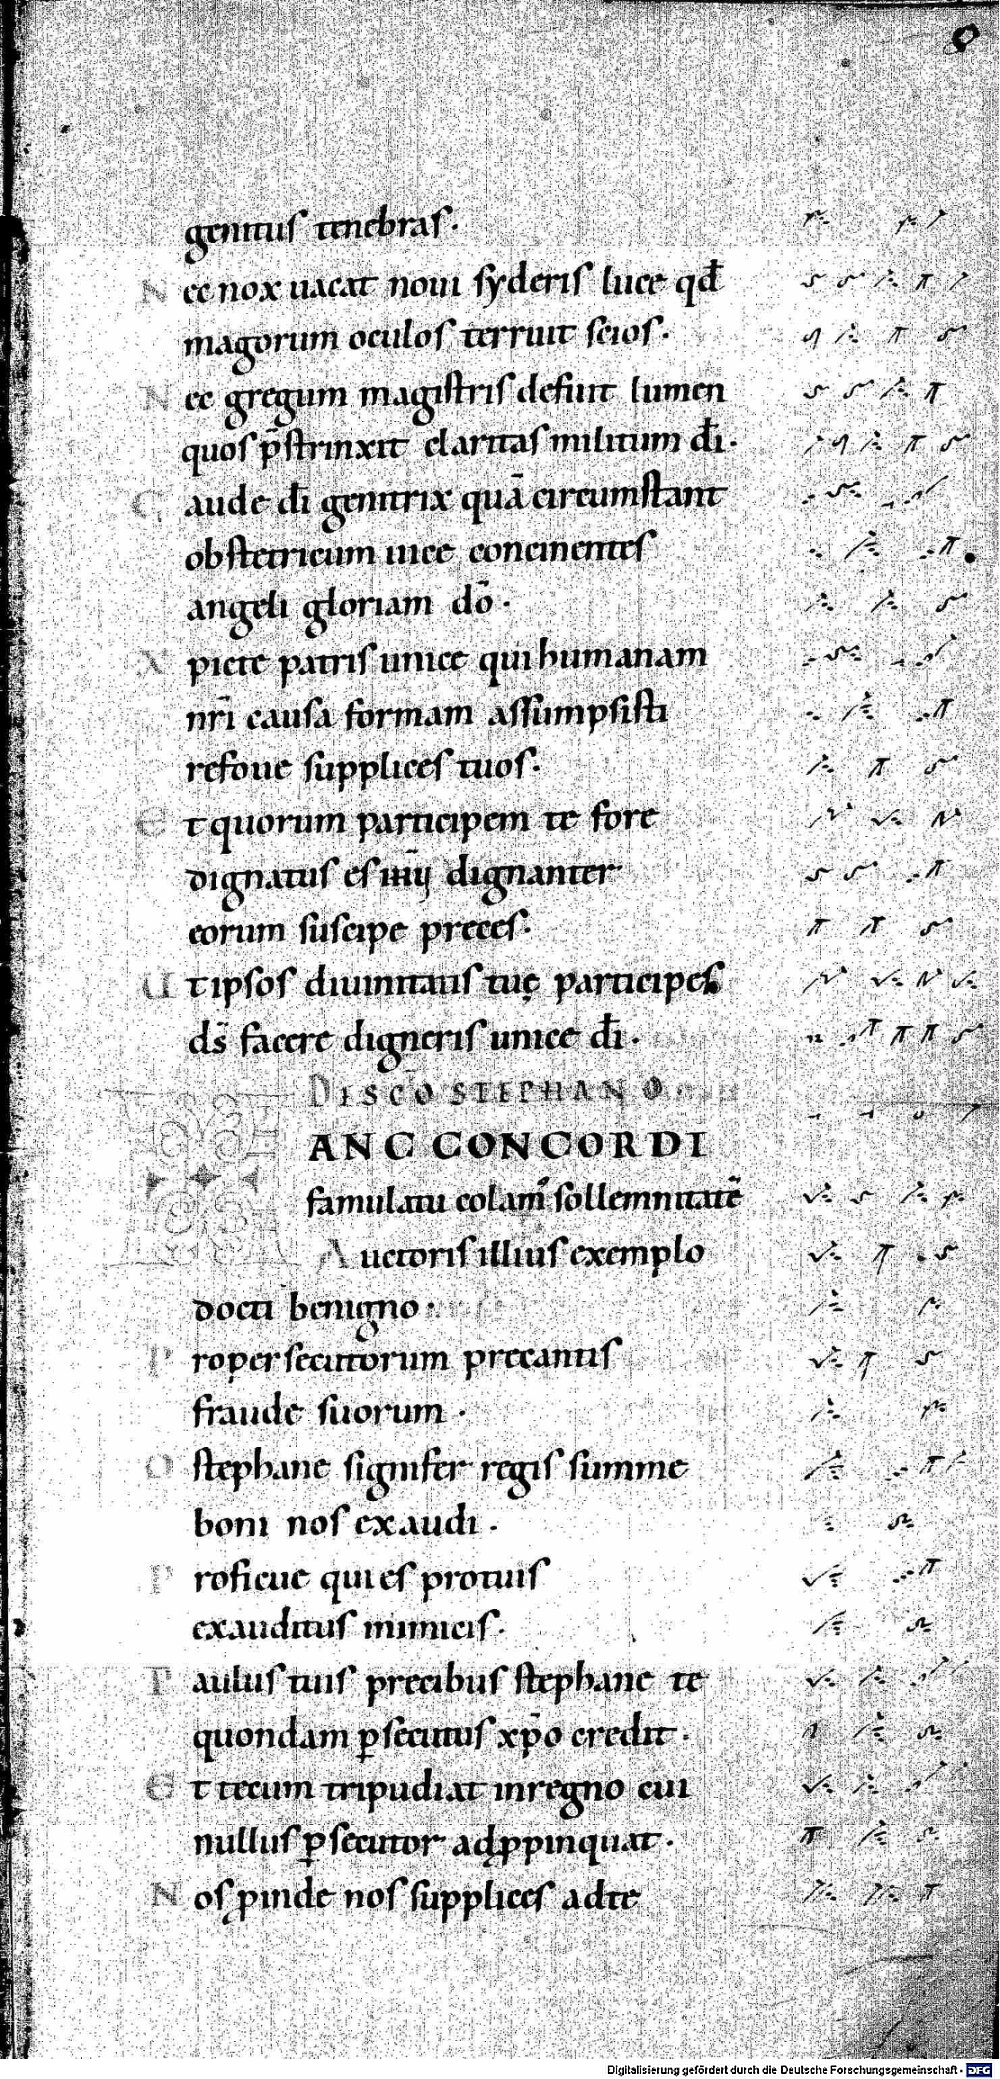 8
genitus tenebras.
Nec nox uacat noui syderis luce qđ
magorum oculos terruit scios.
Nec gregum magistris defuit lumen
quos p̄strinxit claritas militum dī.
Gaude dī genitrix quā circumstant
obstetricum uice concinentes
angeli gloriam dō.
Xpicte patris unice qui humanam
nr̄i causa formam assumpsisti
refoue supplices tuos.
Et quorum participem te fore
dignatus es dignanter
eorum suscipe preces.
Ut ipsos diuinitatis tuę participes
ds̄ facere digneris unice dī.
DISCO STEPHANO.
ANC CONCORDI
famulatu colam᷒ sollemnitatē
Auctoris illius exemplo
docti benigno.
Pro persecutorum precantis
fraude suorum.
O stephane signifer regis summe
boni nos exaudi.
Proficue qui es pro tuis
exauditus inimicis.
Paulus tuis precibus stephane te
quondam ꝑsecutus xp̄o credit.
Et tecum tripudiat in regno cui
nullus ꝑsecutor adꝓpinquat.
Nos ꝓinde nos supplices ad te
Digitalisierung gefördert durch die Deutsche Forschungsgemeinschaft - DFG